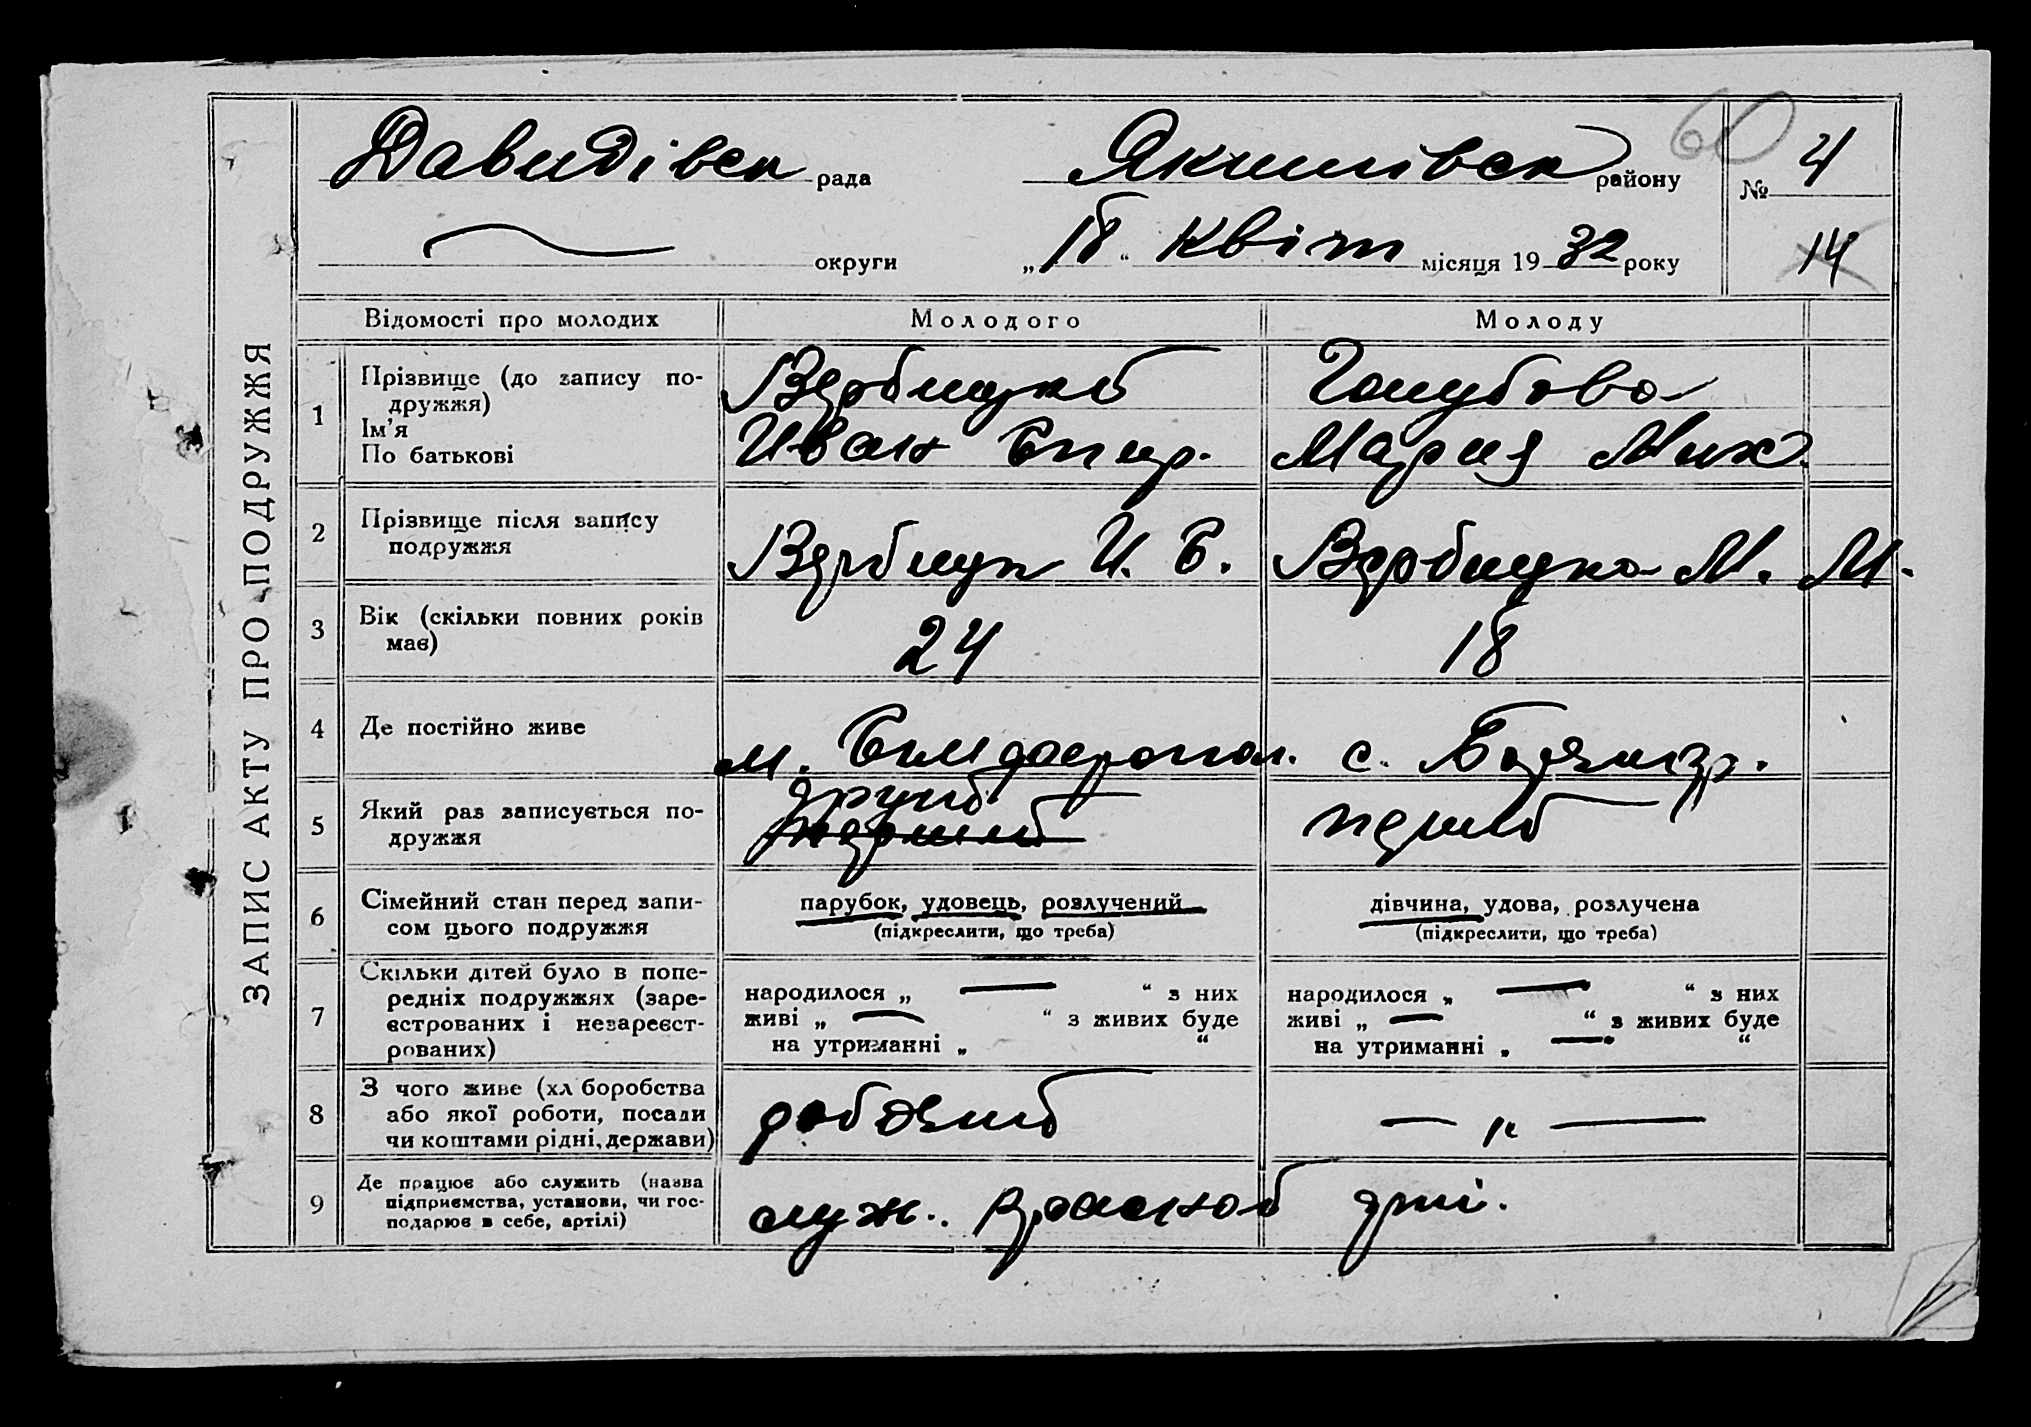 ЗАПИС АКТУ ПРО ПОДРУЖЖЯ
60
Давидівск рада
Якимівск району
№ 4
округи
„18“ Квіт місяця 1932 року
14
Відомості про молодих
Молодого
Молоду
1
Прізвище (до запису по-
дружжя)
Ім'я
По батькові
Вербицкий
Иван Спир.
Голубова
Мария Мих.
2
Прізвище після запису
подружжя
Вербицк И. С.
Вербицка М. М.
3
Вік (скільки повних років
має)
24
18
4
Де постійно живе
м. Симдферопол.
с.
5
Який раз записується по-
дружжя
другий
перший
перший
6
Сімейний стан перед запи-
сом цього подружжя
парубок, удовець, розлучений
(підкреслити, що треба)
дівчина, удова, розлучена
(підкреслити, що треба)
7
Скільки дітей було в попе-
редніх подружжях (заре-
єстрованих і незареєст-
рованих)
народилося „ — “ з них
живі „ — “ з живих буде
на утриманні „ “
народилося „ — “ з них
живі „ — “ з живих буде
на утриманні „ — “
8
З чого живе (хл боробства
або якої роботи, посади
чи коштами рідні, держави)
робочий
— „ —
9
Де працює або служить (назва
підприємства, установи, чи гос-
подарює в себе, артілі)
служ. Красной